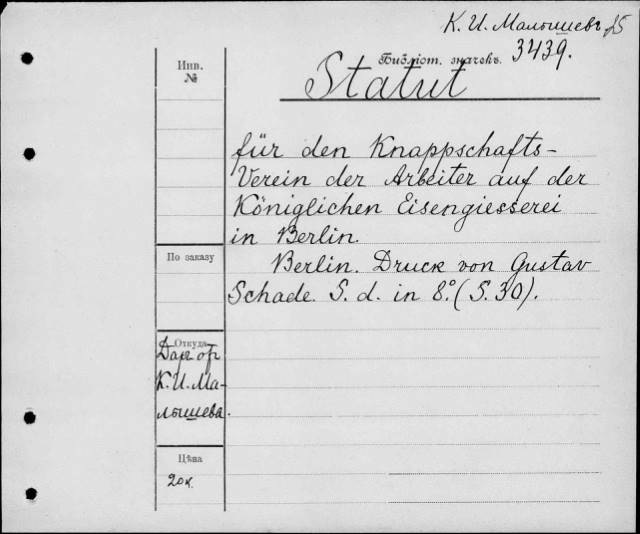 К. И. Малышевъ 25
Библіот. значекъ. 3439.
Инв.
№
Statut
für den Knappschafts-
Verein der Arbeiter auf der
Königlichen Eisengiesserei
in Berlin.
По заказу
Berlin. Druck von Gustav
Schade. S. d. in 8.° (S. 30).
Откуда
Даръ от
К. И. Ма-
лышева.
Цѣна
20к.